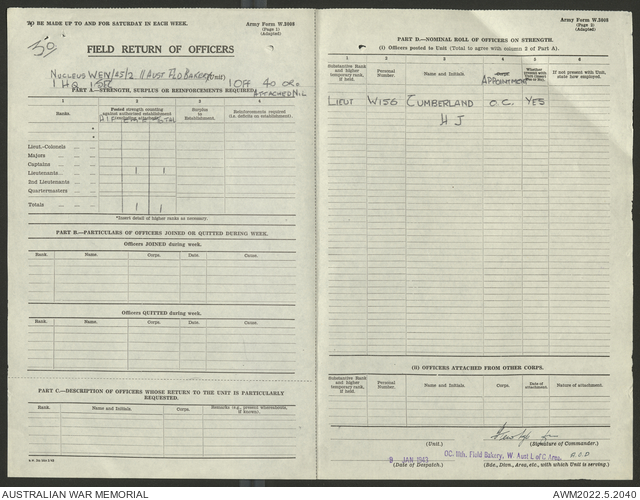 TO BE MADE UP TO AND FOR SATURDAY IN EACH WEEK.
Army Form W.3008
(Page 1)
(Adapted)
FIELD RETURN OF OFFICERS
NUCLEUS WEN/25/2 11 AUST FLD BAKERY (Unit)
1 OFF 40 ORs
ATTACHED NIL
PART A.—STRENGTH, SURPLUS OR REINFORCEMENTS REQUIRED.
1 2 3 4
Ranks.
Posted strength counting
against authorized establishment
Surplus
to
Establishment.
Reinforcements required
(i.e. deficits on establishment).
TOTAL
Lieut.-Colonels
Majors
Captains
Lieutenants 1 1
2nd Lieutenants
Quartermasters
Totals 1 1
*Insert detail of higher ranks as necessary.
PART B.—PARTICULARS OF OFFICERS JOINED OR QUITTED DURING WEEK.
Officers JOINED during week.
Rank. Name. Corps. Date. Cause.
Officers QUITTED during week.
Rank. Name. Corps. Date. Cause.
PART C.—DESCRIPTION OF OFFICERS WHOSE RETURN TO THE UNIT IS PARTICULARLY
REQUESTED.
Rank. Name and Initials. Corps. Remarks (e.g., present whereabouts,
if known).
Army Form W.3008
(Page 2)
(Adapted)
PART D.—NOMINAL ROLL OF OFFICERS ON STRENGTH.
(i) Officers posted to Unit (Total to agree with column 2 of Part A).
1 2 3 4 5 6
Substantive Rank
and higher
temporary rank,
if held.
Personal
Number.
Name and Initials.
Corps.
APPOINTMENT
Whether
present with
Unit (insert
Yes or No).
If not present with Unit,
state how employed.
LIEUT W156 CUMBERLAND O.C. YES
H J
(II) OFFICERS ATTACHED FROM OTHER CORPS.
Substantive Rank
and higher
temporary rank,
if held.
Personal
Number.
Name and Initials.
Corps.
Date of
attachment.
Nature of attachment.
(Unit.) (Signature of Commander.)
9 JAN 1943 OC. 11th. Field Bakery, W. Aust L of C Area.
(Date of Despatch.) (Bde., Divn., Area, etc., with which Unit is serving.)
AUSTRALIAN WAR MEMORIAL
AWM2022.5.2040